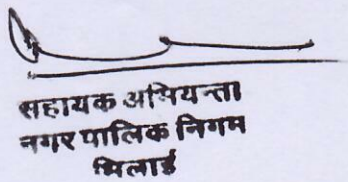 सहायक अभियन्ता
नगर पालिक निगम
भिलाई